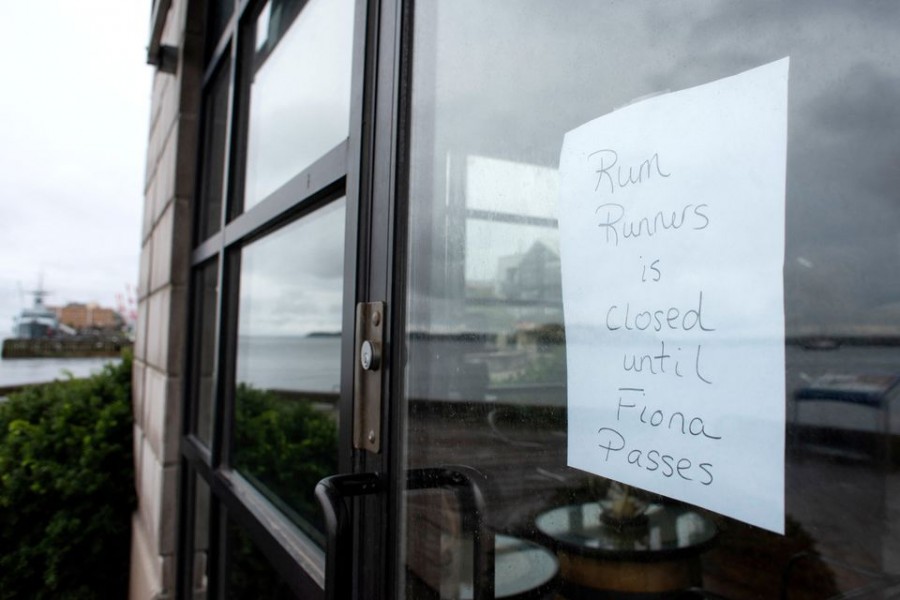 Rum
Runners
is
closed
until
Fiona
Passes